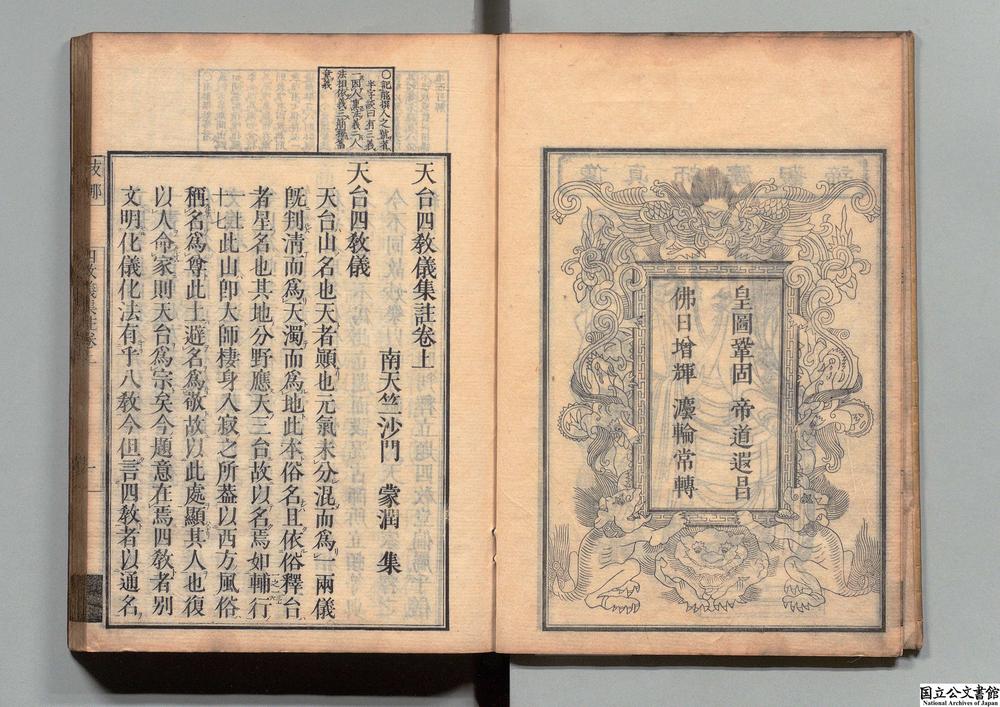 皇圖鞏固 帝道遐昌
佛日增輝 灋輪常轉
天台四教儀集註卷上
南天竺沙門 蒙潤 集
天台四教儀
天台山名也天者顚也元氣未分混而爲一兩儀
旣判淸而爲天濁而爲地此本俗名且依俗釋台
者星名也其地分野應天三台故以名焉如輔行
十七此山卽大師棲身入寂之所葢以西方風俗
稱名爲尊此土避名爲敬故以此處顯其人也復
以人命家則天台爲宗矣今題意在焉四教者別
文明化儀化法有乎八教今但言四教者以通名
國立公文書館
National Archives of Japan